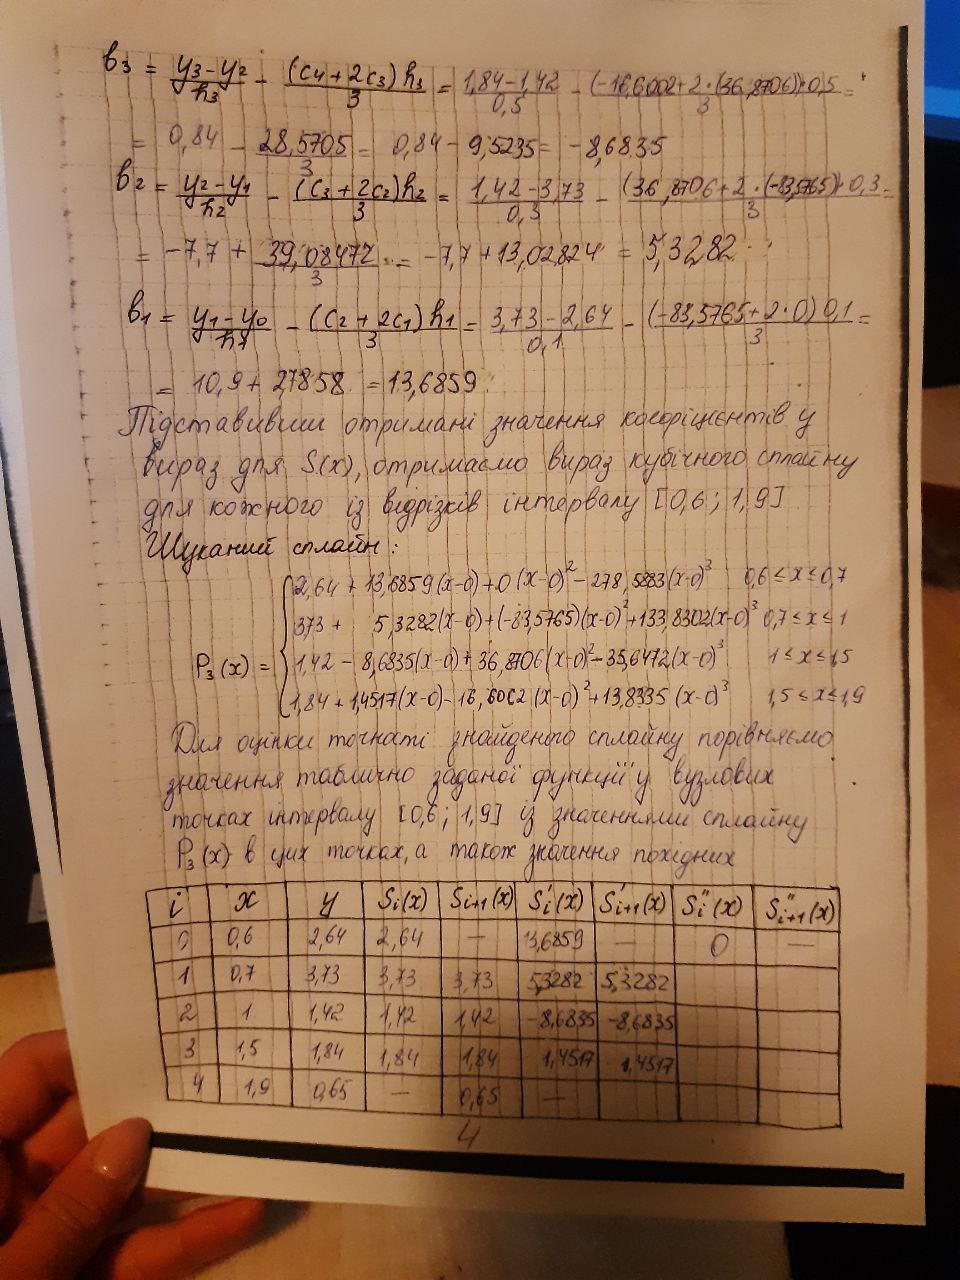 b₃ = (y₃-y₂)/h₃ - ((c₄+2c₃)h₃)/3 = (1,84-1,42)/0,5 - ((-16,6002+2·(36,8706))·0,5)/3 =
= 0,84 - 28,5705/3 = 0,84 - 9,5235 = -8,6835
b₂ = (y₂-y₁)/h₂ - ((c₃+2c₂)h₂)/3 = (1,42-3,73)/0,3 - ((36,8706+2·(-83,5765))·0,3)/3 =
= -7,7 + 39,08472/3 = -7,7+13,02824 = 5,3282
b₁ = (y₁-y₀)/h₁ - ((c₂+2c₁)h₁)/3 = (3,73-2,64)/0,1 - ((-83,5765+2·0)0,1)/3 =
= 10,9+2,7858 = 13,6859
Підставивши отримані значення коефіцієнтів у
вираз для S(x), отримаємо вираз кубічного сплайну
для кожного із відрізків інтервалу [0,6; 1,9]
Шуканий сплайн:
2,64 + 13,6859(x-0)+0(x-0)² - 278,5883(x-0)³ 0,6≤x≤0,7
3,73 + 5,3282(x-0)+(-83,5765)(x-0)²+133,8302(x-0)³ 0,7≤x≤1
P₃(x) = 1,42 - 8,6835(x-0)+36,8706(x-0)²-35,6472(x-0)³ 1≤x≤1,5
1,84+1,4517(x-0)-16,6002(x-0)²+13,8335(x-0)³ 1,5≤x≤1,9
Для оцінки точнаті знайденого сплайну порівняємо
значення таблично заданої функції у вузлових
точках інтервалу [0,6; 1,9] із значеннями сплайну
P₃(x) в цих точках, а також значення похідних
i x y Sᵢ(x) Sᵢ₊₁(x) Sᵢ'(x) Sᵢ₊₁'(x) Sᵢ''(x) Sᵢ₊₁''(x)
0 0,6 2,64 2,64 — 13,6859 — 0 —
1 0,7 3,73 3,73 3,73 5,3282 5,3282
2 1 1,42 1,42 1,42 -8,6835 -8,6835
3 1,5 1,84 1,84 1,84 1,4517 1,4517
4 1,9 0,65 — 0,65 —
4